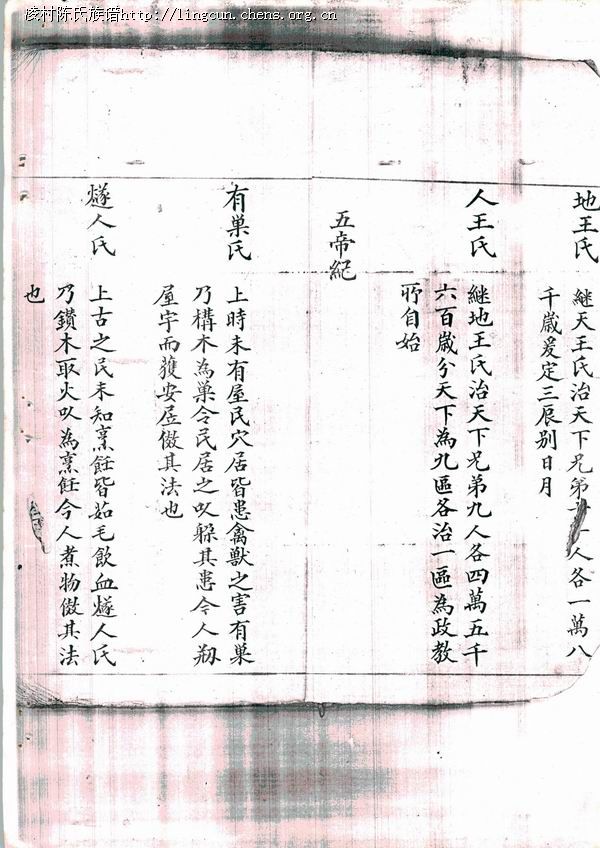 凌村陈氏族谱http://lingcun.chens.org.cn
地王氏
継天王氏治天下兄弟十一人各一萬八
千歳爰定三辰别日月
人王氏
継地王氏治天下兄弟九人各四萬五千
六百歳分天下為九區各治一區為政教
所自始
五帝紀
有巢氏
上時未有屋民穴居皆患禽獸之害有巢
乃構木為巢令民居之以躲其患令人刱
屋宇而獲安居倣其法也
燧人氏
上古之民未知烹飪皆茹毛飲血燧人氏
乃鑽木取火以為烹飪令人煮物倣其法
也